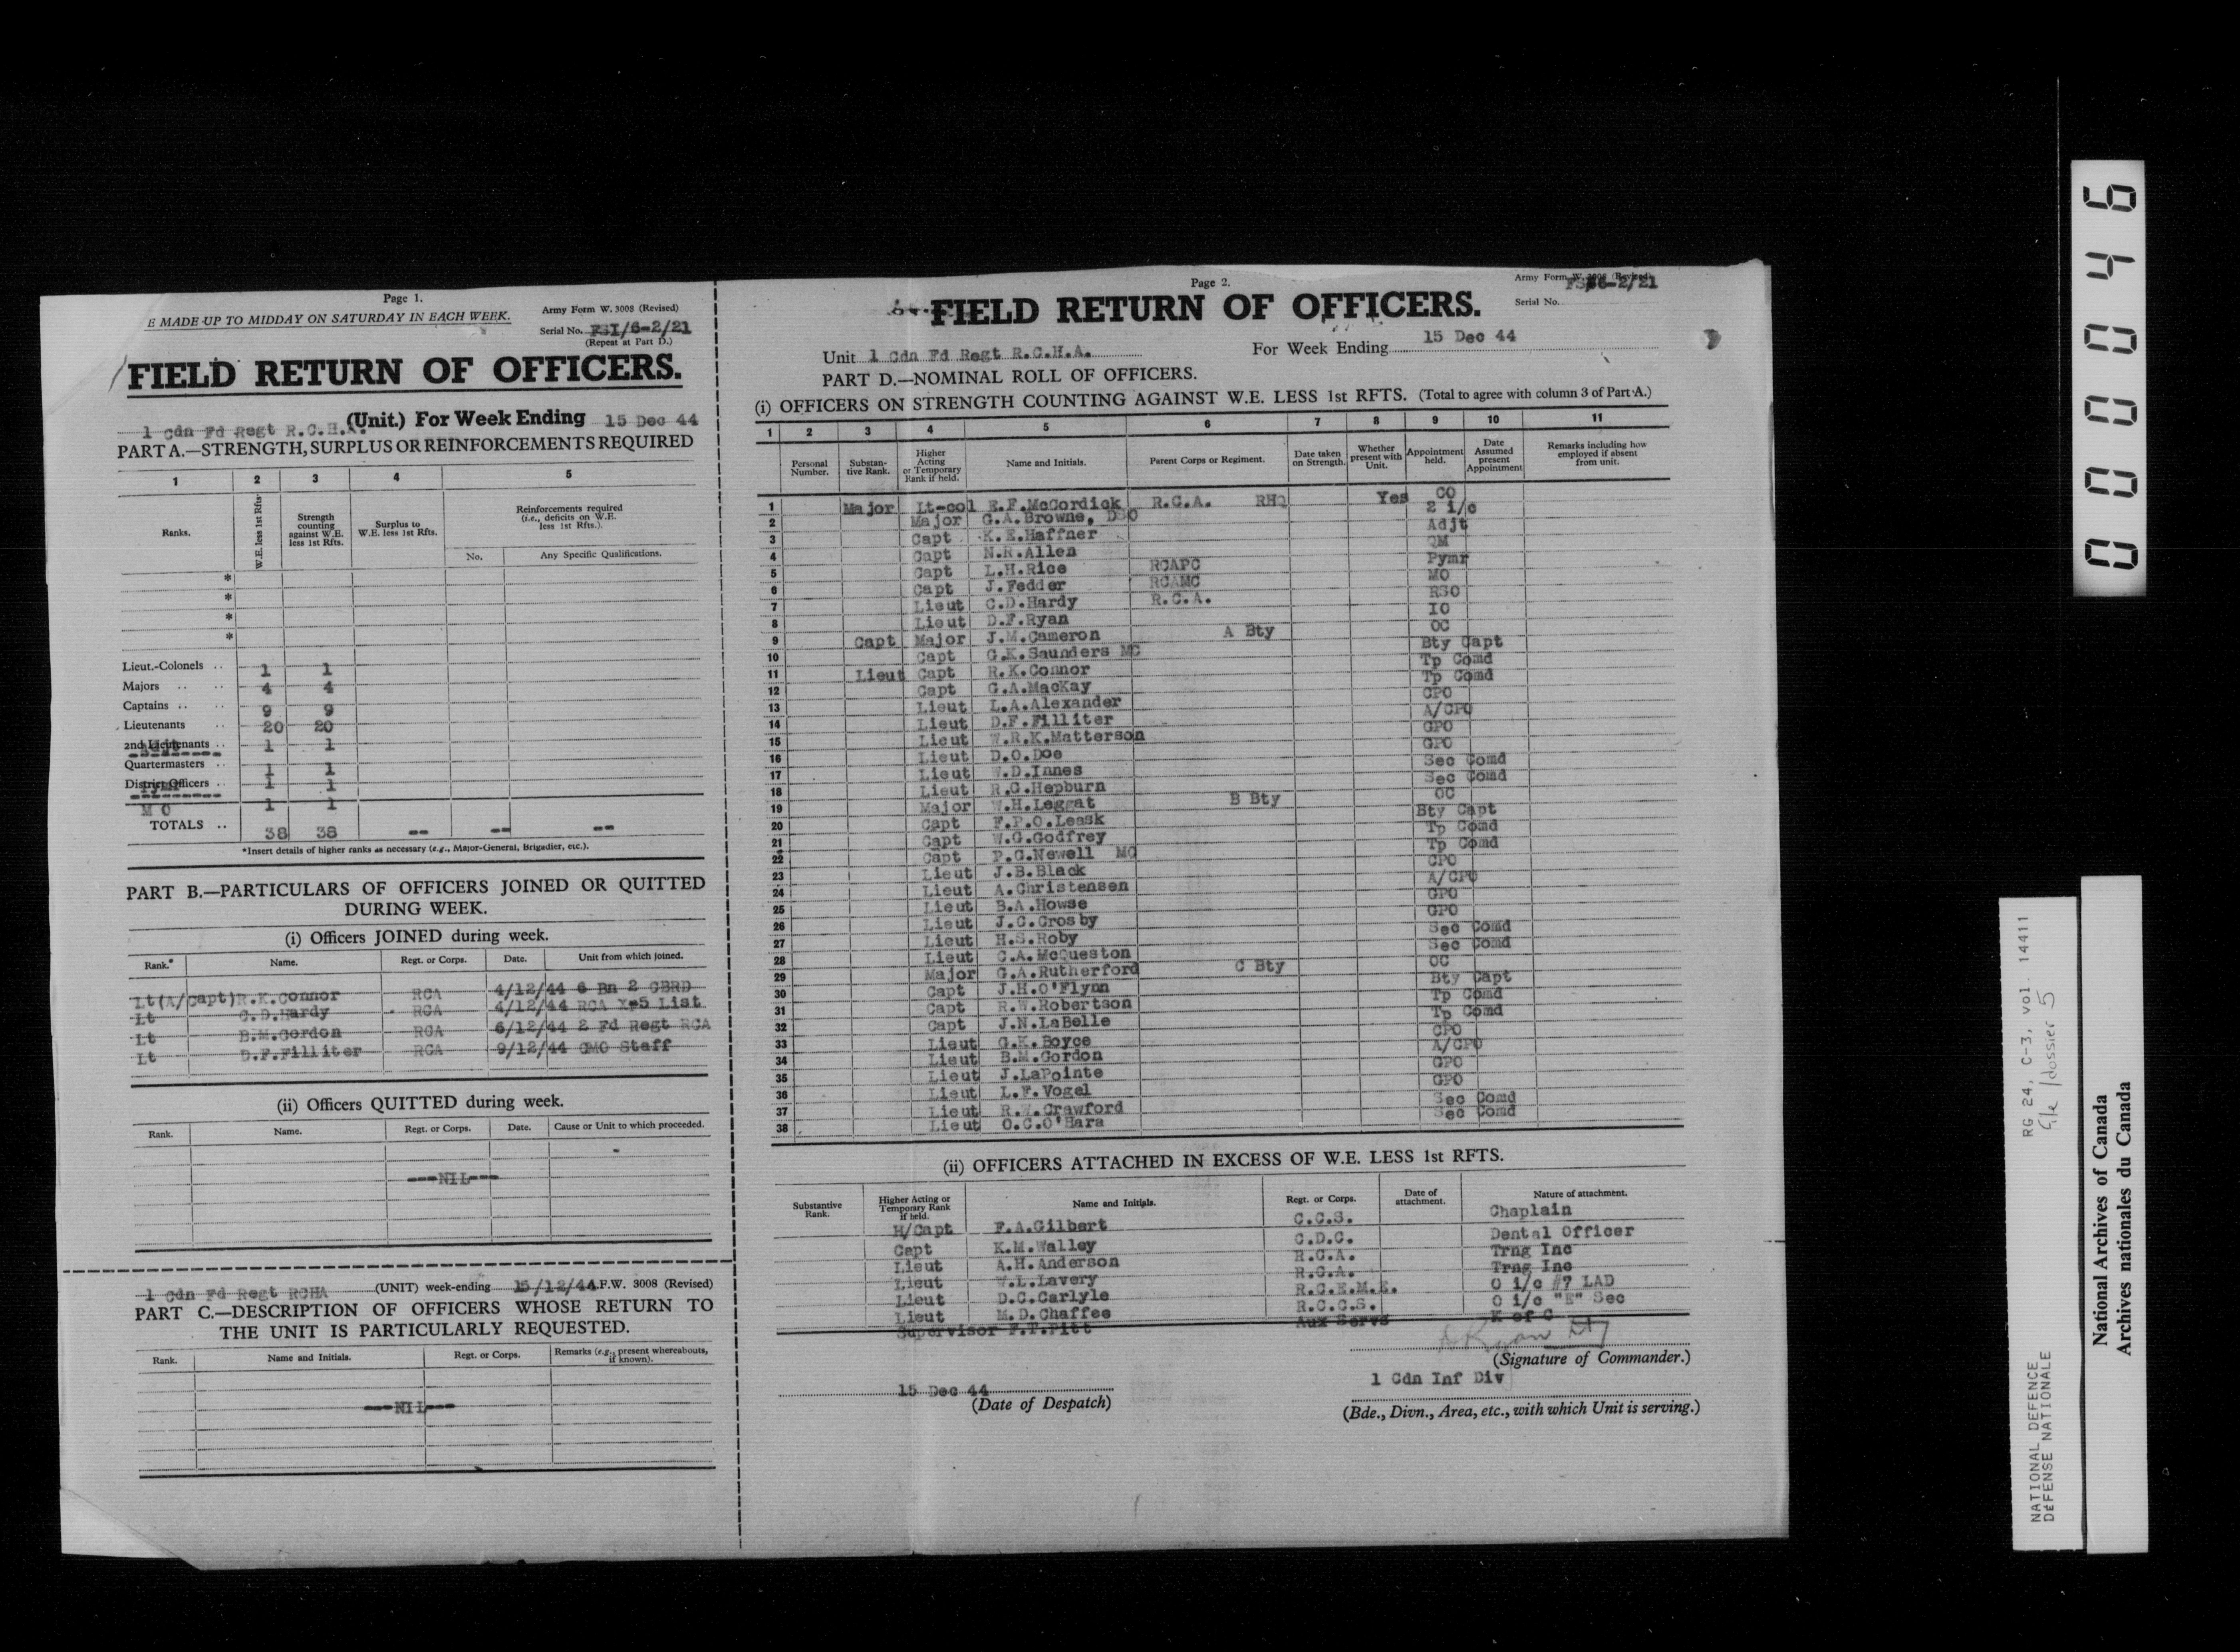 Page 1.
E MADE UP TO MIDDAY ON SATURDAY IN EACH WEEK.
Army Form W. 3008 (Revised)
Serial No. FSI/6-2/21
(Repeat at Part D.)
FIELD RETURN OF OFFICERS.
1 Cdn Fd Regt R.C.H.A. (Unit.) For Week Ending 15 Dec 44
PART A.—STRENGTH, SURPLUS OR REINFORCEMENTS REQUIRED
1 2 3 4 5
Ranks. W.E. less 1st Rfts. Strength counting against W.E. less 1st Rfts. Surplus to W.E. less 1st Rfts. Reinforcements required (i.e., deficits on W.E. less 1st Rfts.).
No. Any Specific Qualifications.
*
*
*
*
Lieut.-Colonels .. 1 1
Majors .. .. 4 4
Captains .. .. 9 9
Lieutenants .. 20 20
2nd Lieutenants .. 1 1
Quartermasters .. 1 1
District Officers .. 1 1
M O 1 1
TOTALS .. 38 38 -- -- --
*Insert details of higher ranks as necessary (e.g., Major-General, Brigadier, etc.).
PART B.—PARTICULARS OF OFFICERS JOINED OR QUITTED
DURING WEEK.
(i) Officers JOINED during week.
Rank.* Name. Regt. or Corps. Date. Unit from which joined.
Lt(A/Capt) R.K.Connor RCA 4/12/44 6 Bn 2 CBRD
Lt C.D.Hardy RCA 4/12/44 RCA X-5 List
Lt B.M.Gordon RCA 6/12/44 2 Fd Regt RCA
Lt D.F.Filliter RCA 9/12/44 GMO Staff
(ii) Officers QUITTED during week.
Rank. Name. Regt. or Corps. Date. Cause or Unit to which proceeded.
---NIL---
1 Cdn Fd Regt RCHA (UNIT) week-ending 15/12/44 A.F.W. 3008 (Revised)
PART C.—DESCRIPTION OF OFFICERS WHOSE RETURN TO
THE UNIT IS PARTICULARLY REQUESTED.
Rank. Name and Initials. Regt. or Corps. Remarks (e.g., present whereabouts, if known).
---NIL---
Page 2.
Army Form W. 3008 (Revised)
Serial No. 6-2/21
FIELD RETURN OF OFFICERS.
Unit 1 Cdn Fd Regt R.C.H.A. For Week Ending 15 Dec 44
PART D.—NOMINAL ROLL OF OFFICERS.
(i) OFFICERS ON STRENGTH COUNTING AGAINST W.E. LESS 1st RFTS. (Total to agree with column 3 of Part A.)
1 2 3 4 5 6 7 8 9 10 11
Personal Number. Substantive Rank. Higher Acting or Temporary Rank if held. Name and Initials. Parent Corps or Regiment. Date taken on Strength. Whether present with Unit. Appointment held. Date Assumed present Appointment Remarks including how employed if absent from unit.
1 Major Lt-col E.F.McCordick R.C.A. RHQ Yes CO
2 Major G.A.Browne, DSO 2 i/c
3 Capt K.E.Haffner Adjt
4 Capt N.R.Allen QM
5 Capt L.H.Rice RCAPC Pymr
6 Capt J.Fedder RCAMC MO
7 Lieut C.D.Hardy R.C.A. RSO
8 Lieut D.F.Ryan IO
9 Capt Major J.M.Cameron A Bty OC
10 Capt G.K.Saunders MC Bty Capt
11 Lieut Capt R.K.Connor Tp Comd
12 Capt G.A.MacKay Tp Comd
13 Lieut L.A.Alexander CPO
14 Lieut D.F.Filliter A/CPO
15 Lieut W.R.K.Matterson GPO
16 Lieut D.O.Doe GPO
17 Lieut W.D.Innes Sec Comd
18 Lieut R.G.Hepburn Sec Comd
19 Major W.H.Leggat B Bty OC
20 Capt F.P.O.Leask Bty Capt
21 Capt W.G.Godfrey Tp Comd
22 Capt P.G.Newell MC Tp Comd
23 Lieut J.B.Black CPO
24 Lieut A.Christensen A/CPO
25 Lieut B.A.Howse GPO
26 Lieut J.C.Crosby GPO
27 Lieut H.S.Roby Sec Comd
28 Lieut C.A.McQueston Sec Comd
29 Major G.A.Rutherford C Bty OC
30 Capt J.H.O'Flynn Bty Capt
31 Capt R.W.Robertson Tp Comd
32 Capt J.N.LaBelle Tp Comd
33 Lieut G.K.Boyce CPO
34 Lieut B.M.Gordon A/CPO
35 Lieut J.LaPointe GPO
36 Lieut L.F.Vogel GPO
37 Lieut Crawford Sec Comd
38 Lieut O.C.O'Hara Sec Comd
(ii) OFFICERS ATTACHED IN EXCESS OF W.E. LESS 1st RFTS.
Substantive Rank. Higher Acting or Temporary Rank if held. Name and Initials. Regt. or Corps. Date of attachment. Nature of attachment.
H/Capt F.A.Gilbert C.C.S. Chaplain
Capt K.M.Walley C.D.C. Dental Officer
Lieut A.H.Anderson R.C.A. Trng Inc
Lieut W.L.Lavery R.C.A. Trng Inc
Lieut D.C.Carlyle R.C.E.M.E. O i/c #7 LAD
Lieut M.D.Chaffee R.C.C.S. O i/c "E" Sec
Supervisor F.T.Pitt Aux Servs K of C
DRyan Lt
(Signature of Commander.)
15 Dec 44
(Date of Despatch)
1 Cdn Inf Div
(Bde., Divn., Area, etc., with which Unit is serving.)
000046
RG 24, C-3, vol. 14411
file/dossier 5
NATIONAL DEFENCE
DÉFENSE NATIONALE
National Archives of Canada
Archives nationales du Canada